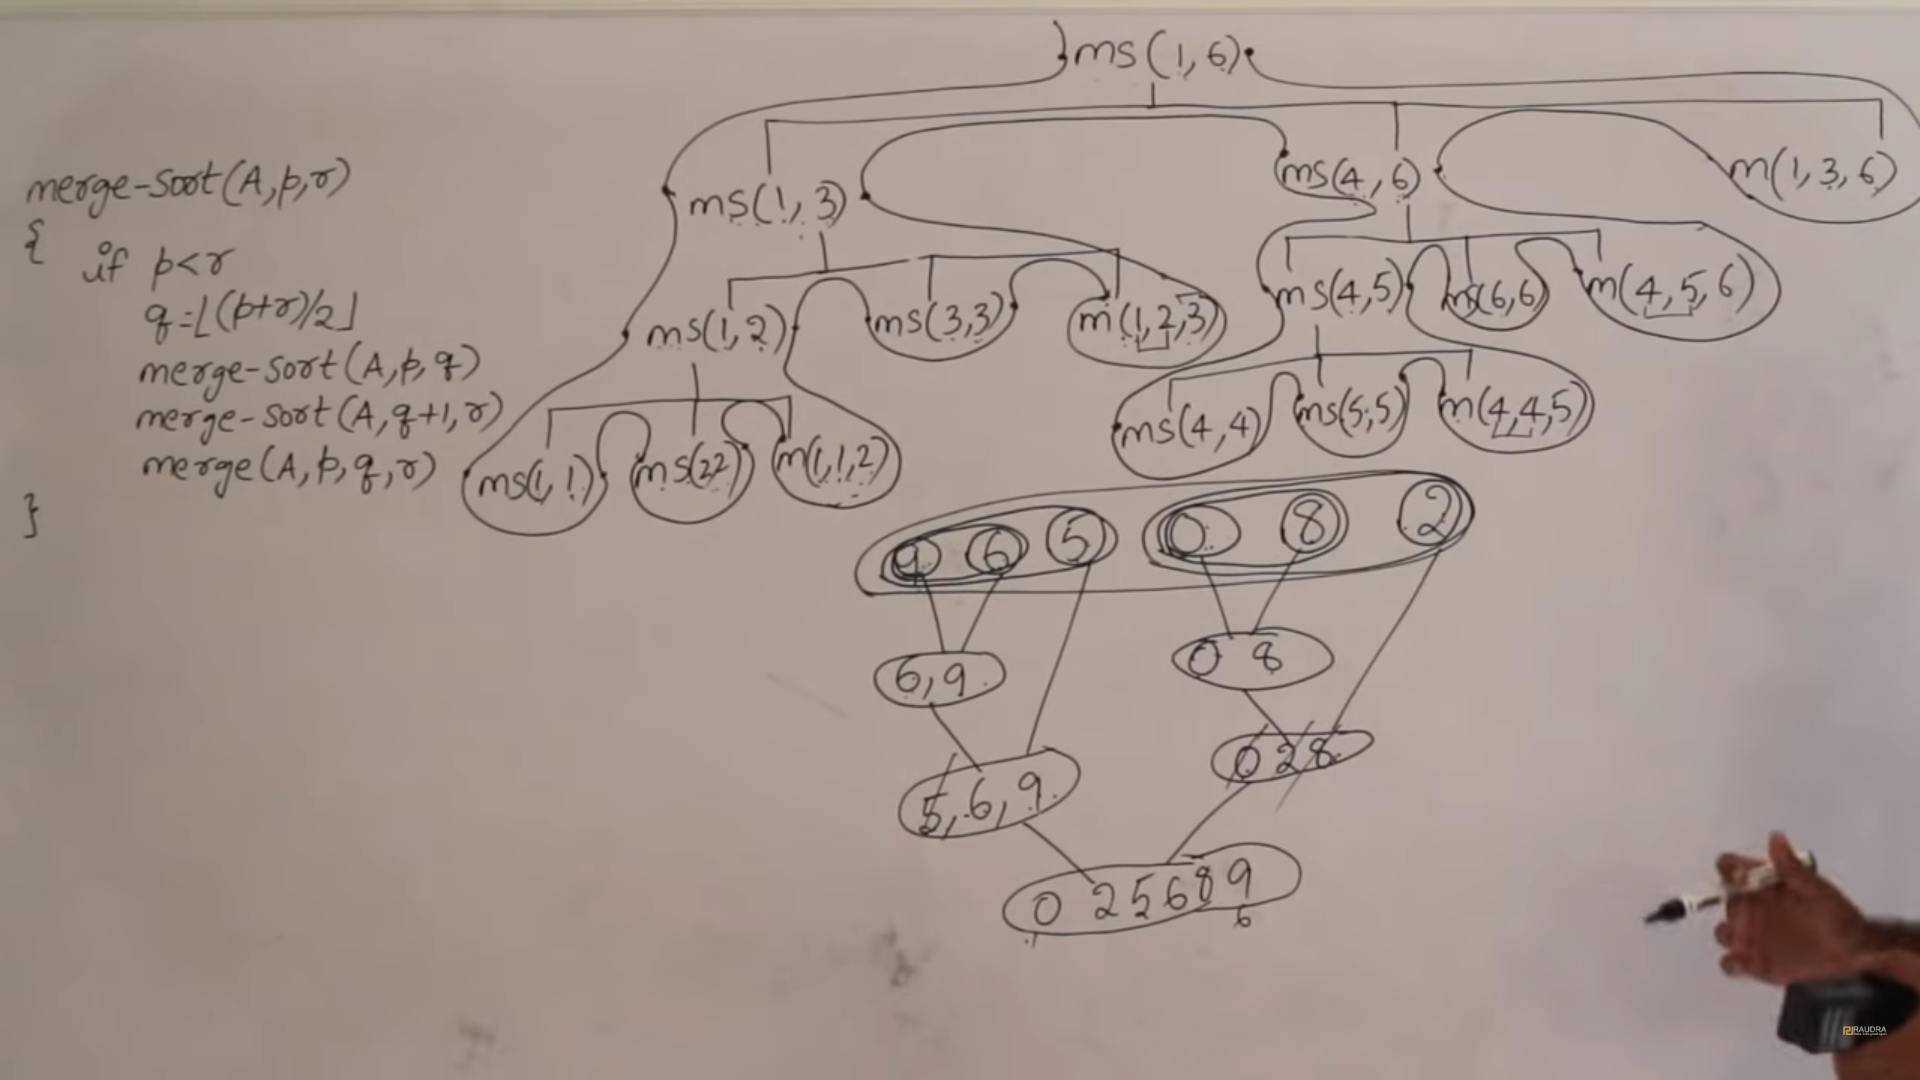 merge-sort(A,p,r)
{
if p<r
q=⌊(p+r)/2⌋
merge-sort(A,p,q)
merge-sort(A,q+1,r)
merge(A,p,q,r)
}
ms(1,6)
ms(1,3) ms(4,6) m(1,3,6)
ms(1,2) ms(3,3) m(1,2,3) ms(4,5) ms(6,6) m(4,5,6)
ms(1,1) ms(22) m(1,1,2) ms(4,4) ms(5,5) m(4,4,5)
9 6 5 0 8 2
6,9 0 8
5,6,9 0 2 8
0 2 5 6 8 9
1 6
RAUDRA